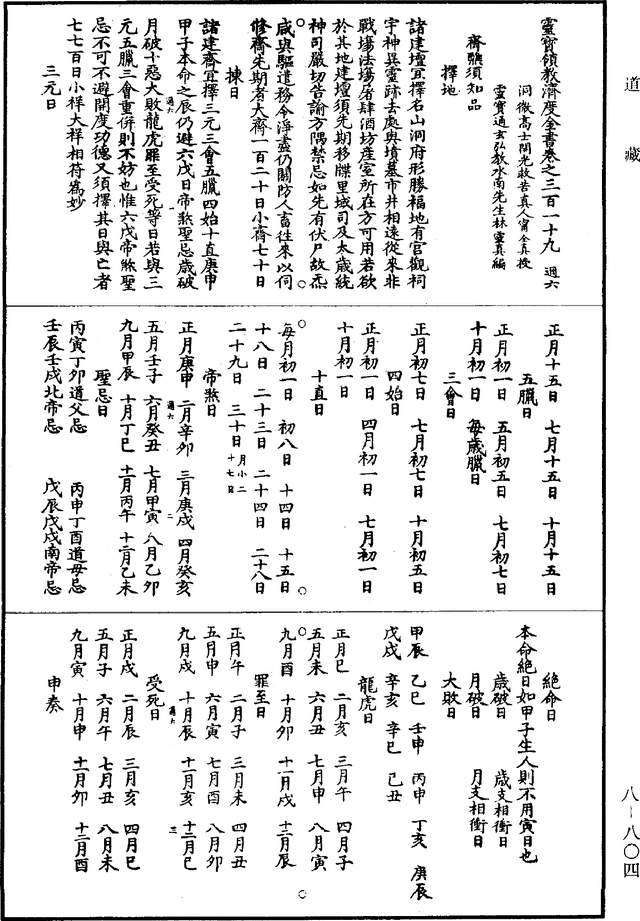 道藏
靈寶領教濟度金書卷之三百一十九 週六
洞微高士開光救苦真人甯全真授
靈寶通玄弘教水南先生林靈真編
齋醮須知品
擇地
諸建壇宜擇名山洞府形勝福地有宮觀祠
宇神異靈跡去處與墳墓市井相遠從來非
戰場法場房肆酒坊產室所在方可用若欲
於其地建壇須先期移牒里域司及太歲統
神司嚴切告諭方隅禁忌如先有伏尸故炁
咸與驅遣務令淨盡仍關防人畜往來以伺
修齋先期者大齋一百二十日小齋七十日
揀日
諸建齋宜擇三元三會五臘四始十直庚申
甲子本命之辰仍避六戊日帝煞聖忌歲破
月破十惡大敗龍虎罪至受死等日若與三
元五臘三會重併則不妨也惟六戊帝煞聖
忌不可不避開度功德又須擇其日與亡者
七七百日小祥大祥相符為妙
三元日
正月十五日 七月十五日 十月十五日
五臘日
正月初一日 五月初五日 七月初七日
十月初一日 每歲臘日
三會日
正月初七日 七月初七日 十月初五日
四始日
正月初一日 四月初一日 七月初一日
十月初一日
十直日
每月初一日 初八日 十四日 十五日
十八日 二十三日 二十四日 二十八日
二十九日 三十日 月小二十七日
帝煞日
正月庚申 二月辛卯 三月庚戌 四月癸亥
五月壬子 六月癸丑 七月甲寅 八月乙卯
九月甲辰 十月丁巳 十一月丙午 十二月乙未
聖忌日
丙寅丁卯道父忌 丙申丁酉道母忌
壬辰壬戌北帝忌 戊辰戊戌南帝忌
絕命日
本命絕日如甲子生人則不用寅日也
歲破日 歲支相衝日
月破日 月支相衝日
大敗日
甲辰 乙巳 壬申 丙申 丁亥 庚辰
戊戌 辛亥 辛巳 己丑
龍虎日
正月巳 二月亥 三月午 四月子
五月未 六月丑 七月申 八月寅
九月酉 十月卯 十一月戌 十二月辰
罪至日
正月午 二月子 三月未 四月丑
五月申 六月寅 七月酉 八月卯
九月戌 十月辰 十一月亥 十二月巳
受死日
正月戌 二月辰 三月亥 四月巳
五月子 六月午 七月丑 八月未
九月寅 十月申 十一月卯 十二月酉
申奏
八-八〇四